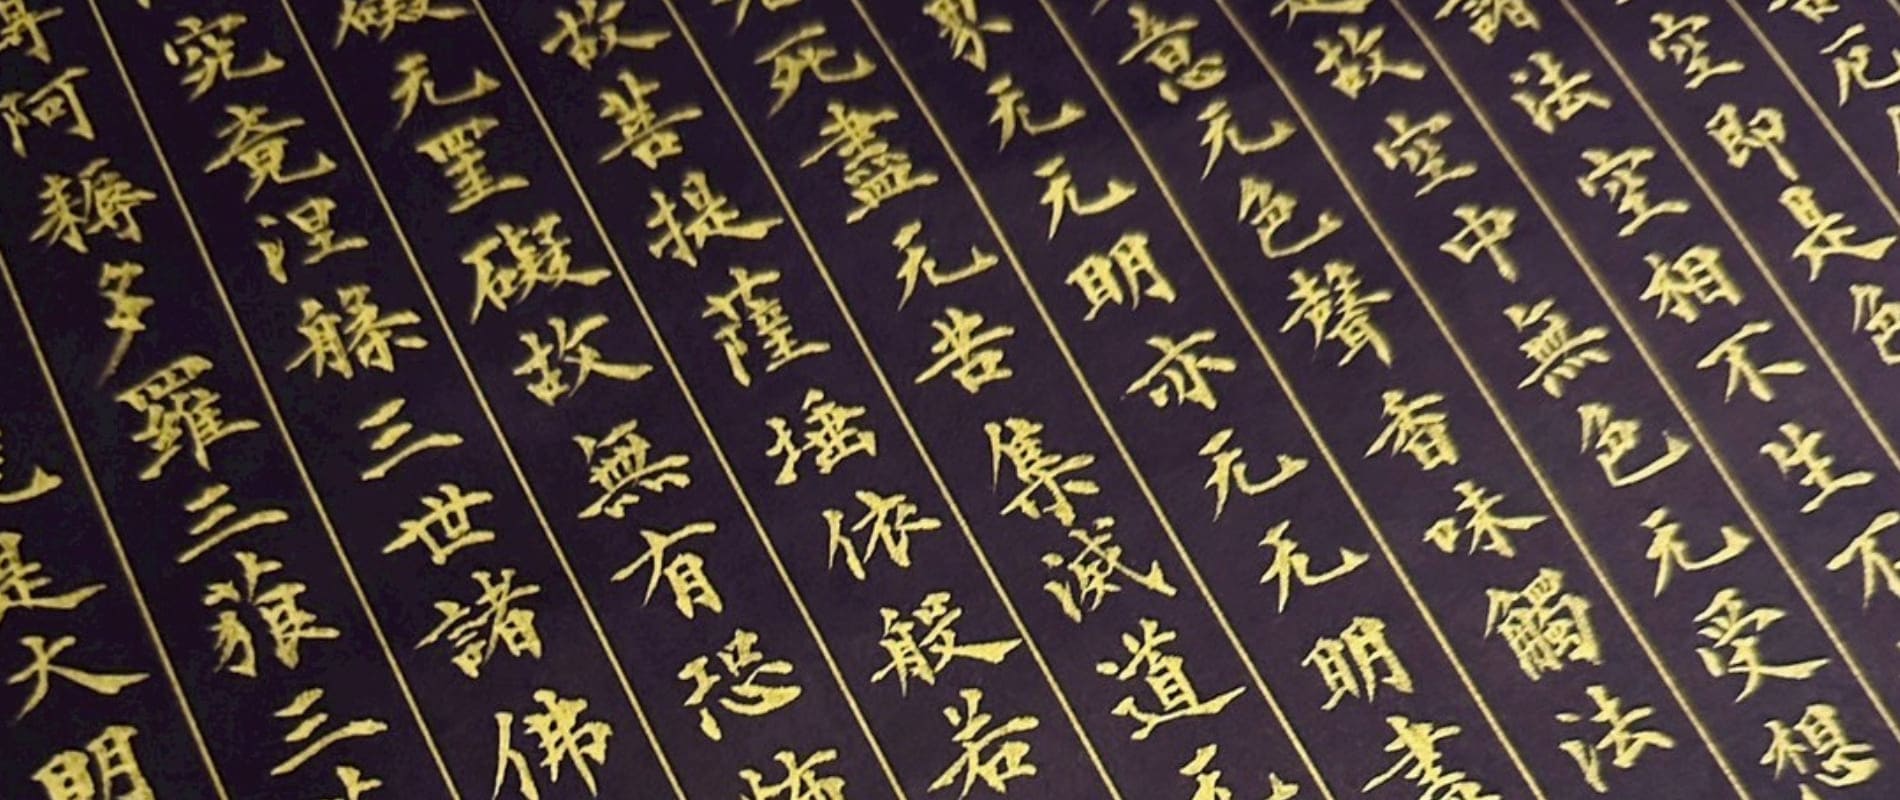 厄
空即是色
諸法空相不生不
故空中無色无受想
意无色聲香味觸法
界无无明亦无无明盡
死盡无苦集滅道无
故菩提薩埵依般若
礙无罣礙故無有恐怖
究竟涅槃三世諸佛
得阿耨多羅三藐三
是大明